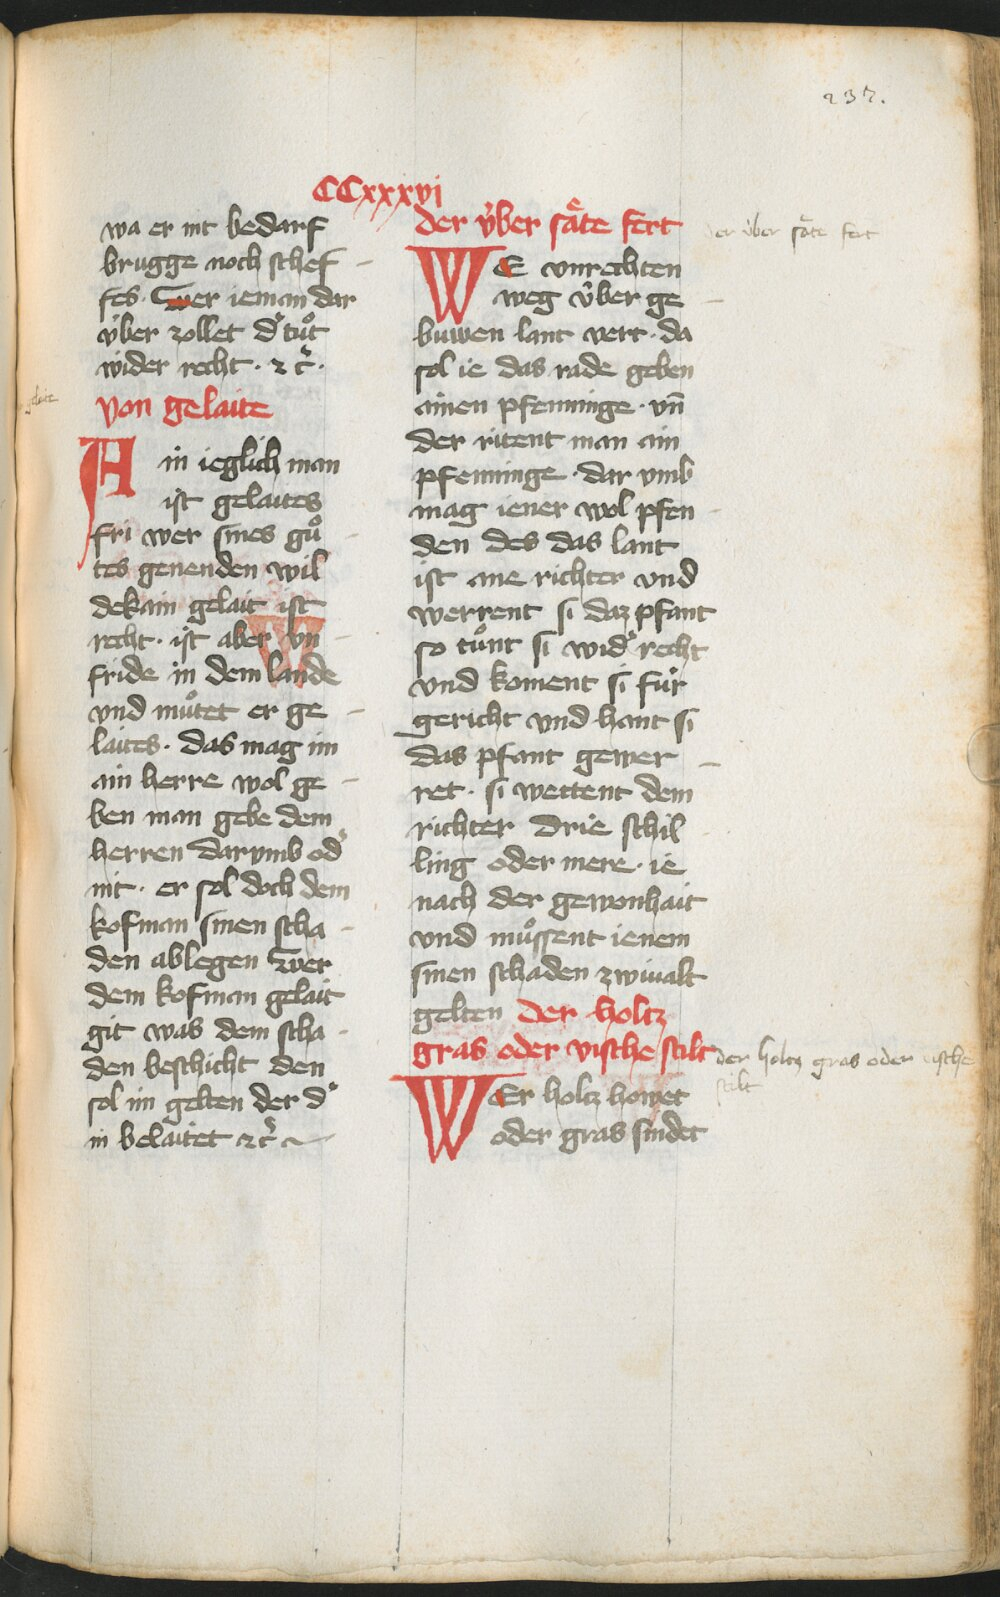 237.
CCxxxvi
wa er nit bedarf
brugge noch schef
fes. Swer ieman dar
v̇ber zollet d' tuͦt
wider recht · ꝛ c̄ ·
von gelaite
Ain ieglich man
ist gelaites
fri wer sines guͦ
tes genenden wil
dekain gelait ist
recht · ist aber vn
fride in dem lande
vnd muͦtet er ge
laites · das mag im
ain herre wol ge
ben man gebe dem
herren darvmb od'
nit · er sol doch dem
kofman sinen scha
den ablegen Swer
dem kofman gelait
git was dem scha
den beschicht den
sol im gelten der d'
in belaitet ꝛc̄
der v̇ber saͤte fert
WE vnrechten
weg v̇ber ge
buwen lant vert · da
sol ie das rade geben
ainen pfenninge · vn̄
der ritent man ain
pfenninge · dar vmb
mag iener wol pfen
den des das lant
ist ane richter vnd
werrent si daz pfant
so tuͦnt si wid' recht
vnd koment si fu̇r
gericht vnd hant si
das pfant gewer
ret · si wettent dem
richter drie schil
ling oder mere · ie
nach der gewonhait
vnd muͦssent ienem
sinen schaden zwiualt
gelten der holtz
gras oder vische stilt
WEr holtz howet
oder gras sindet
der v̇ber saͤte fert
der holtz gras oder vische
stilt
gelaite